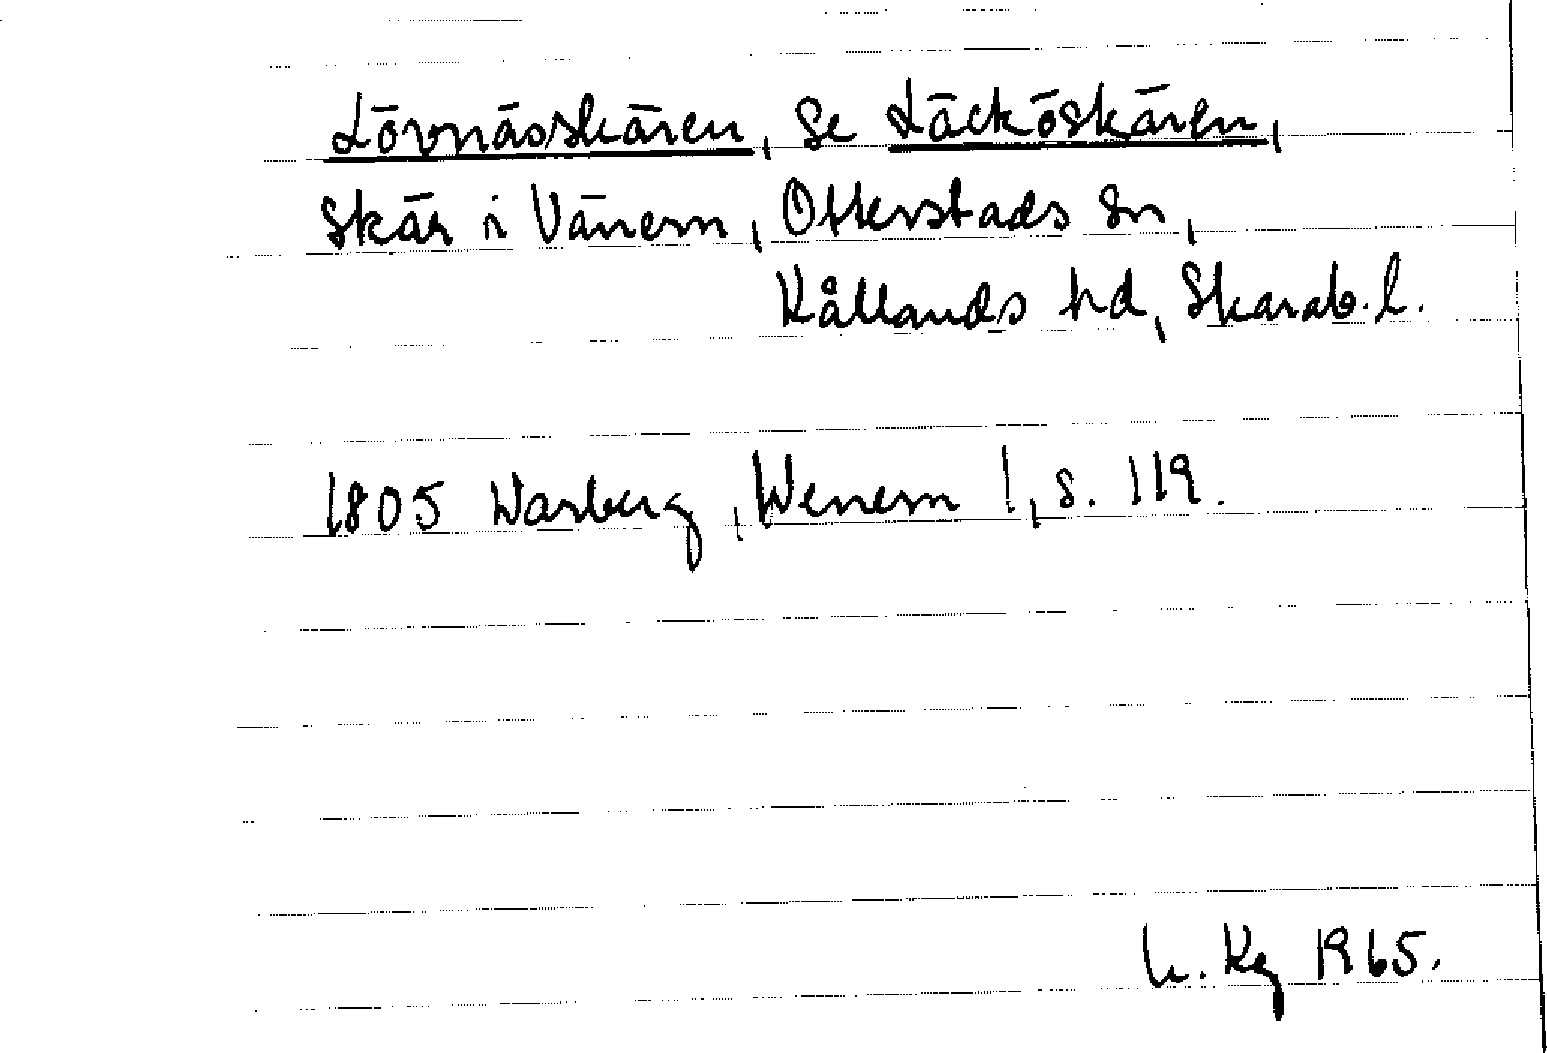 Lövnässkären, se Läcköskären,
skär i Vänern, Otterstads sn,
Kållands hd, Skarab. l.
1805 Warberg, Wenern I, s. 119.
Kg 1965.